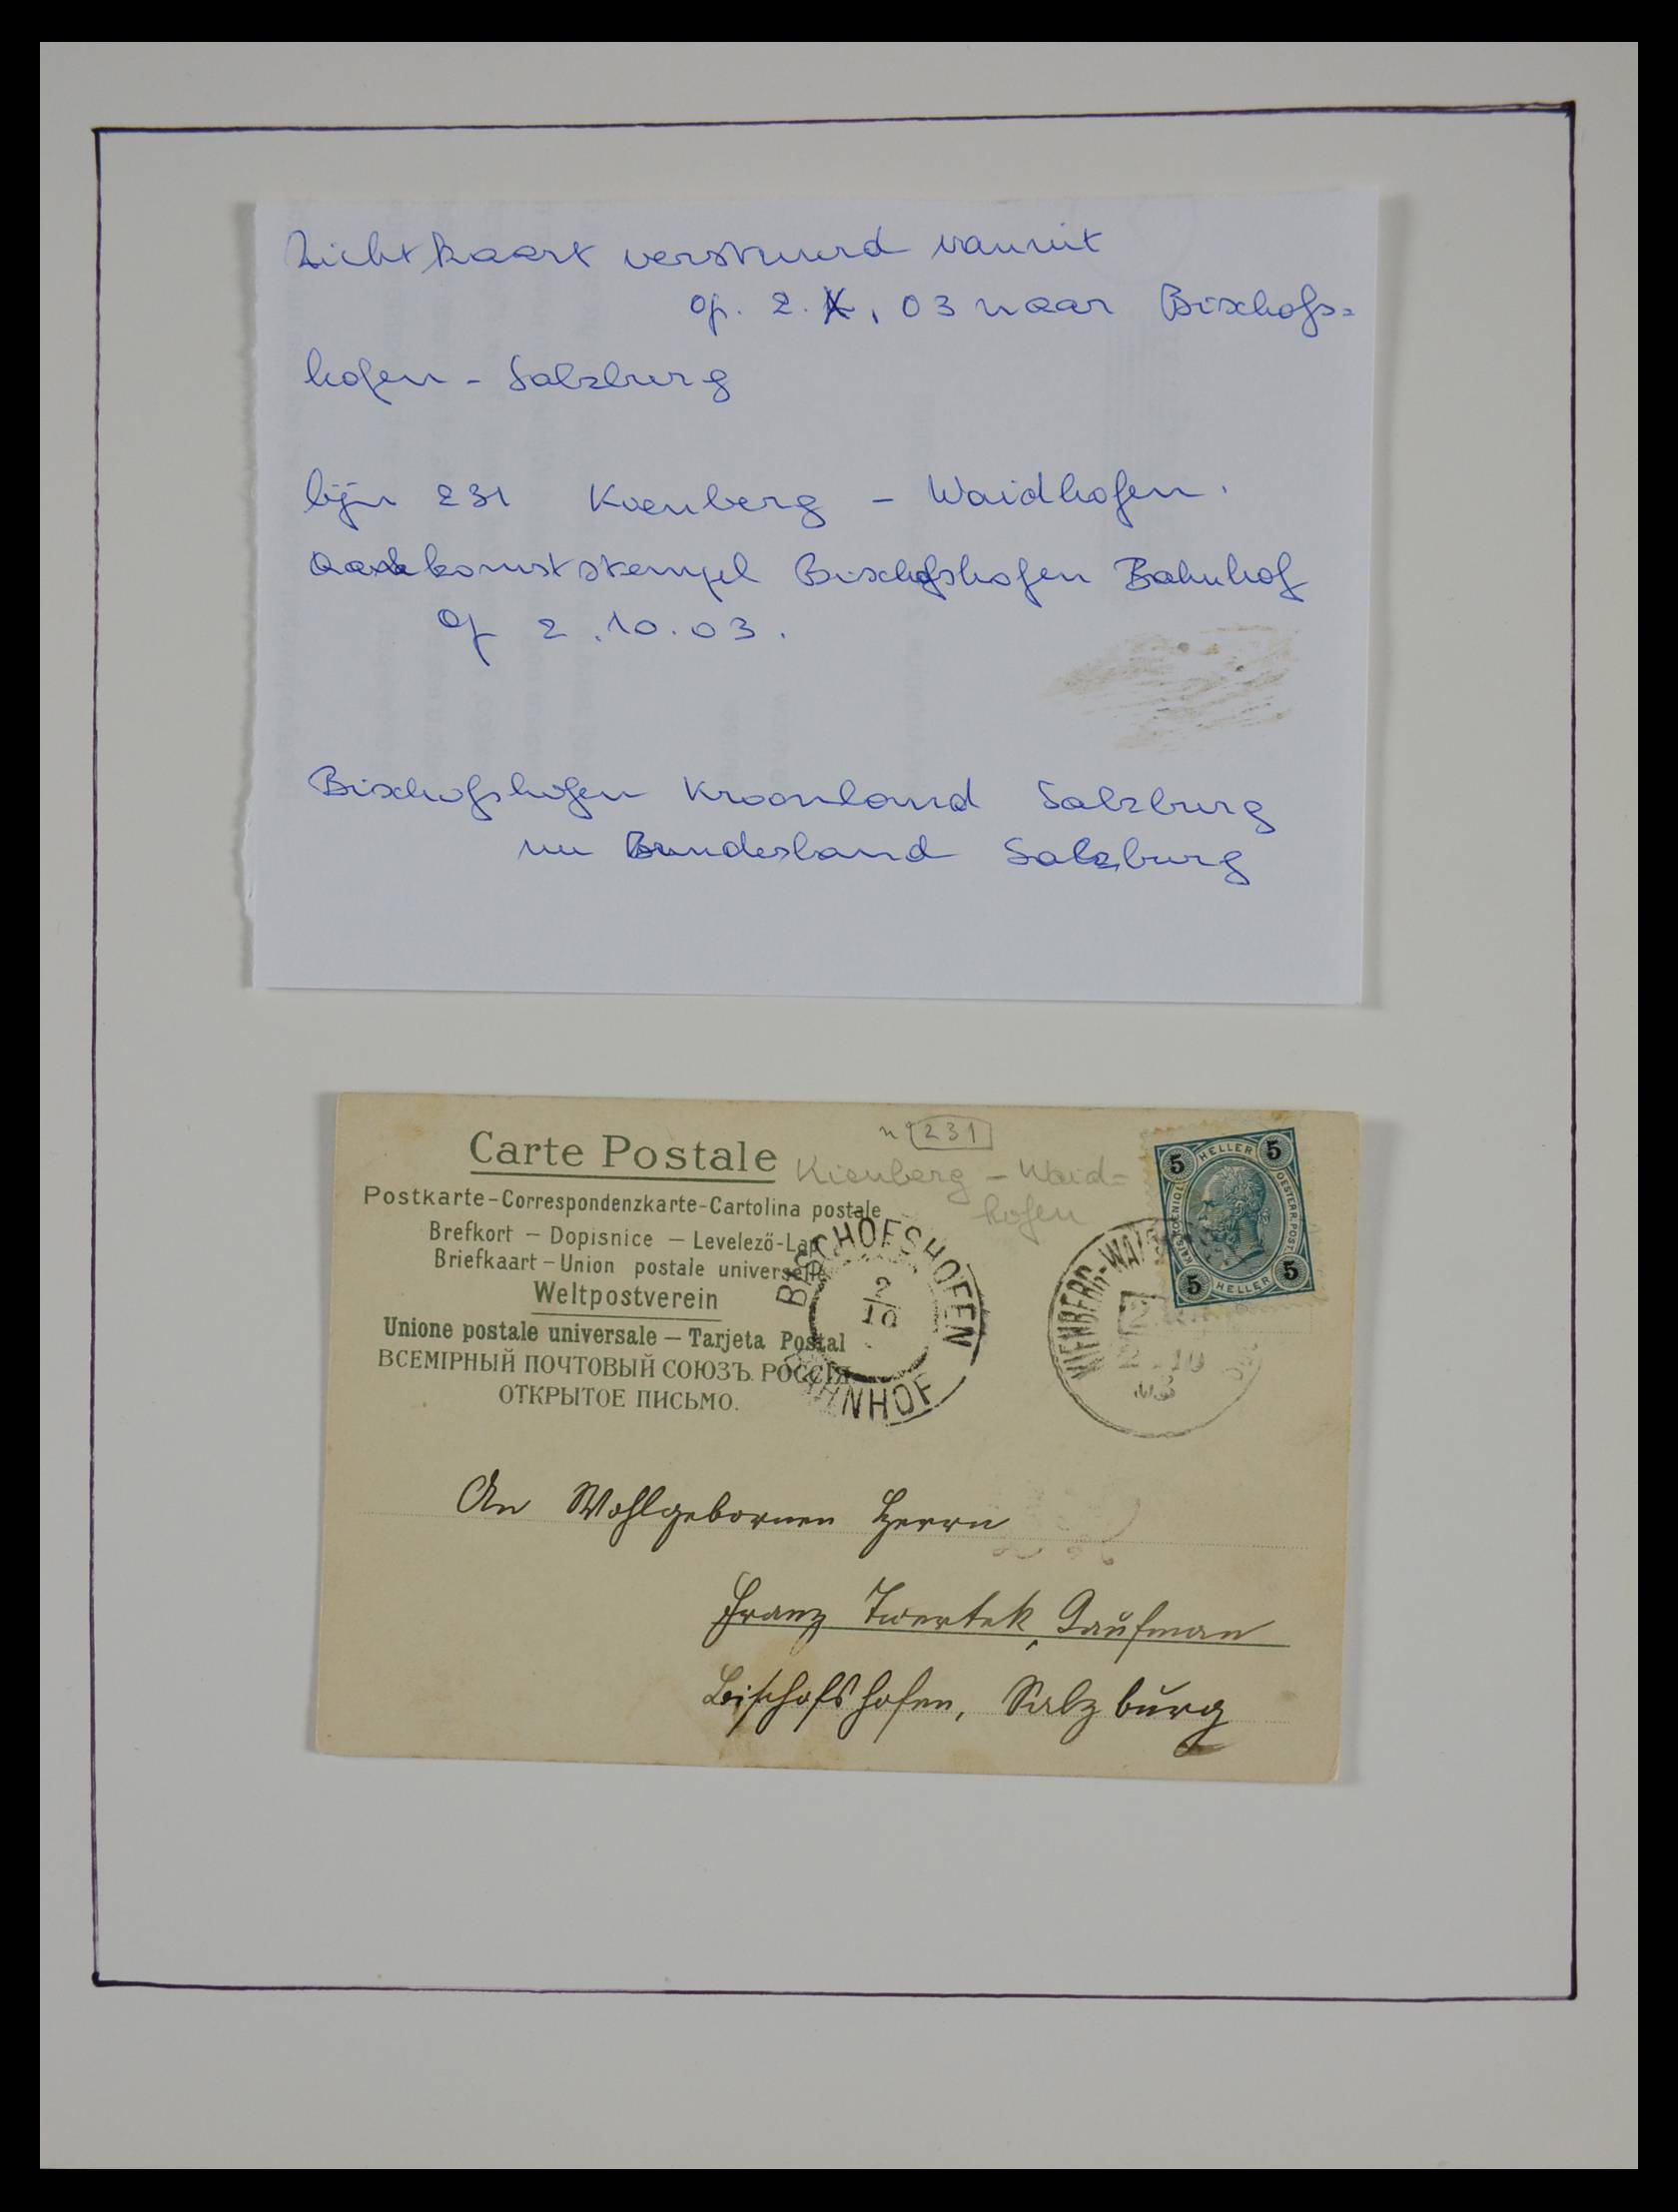 Zichtkaart verstuurd vanuit
op. 2.X.03 naar Bischofs=
hofen - Salzburg
lijn 231 Kienberg - Waidhofen.
aankomststempel Bischofshofen Bahnhof
op 2.10.03.
Bischofshofen Kroonland Salzburg
nu Bundesland Salzburg
nº 231
Carte Postale
Kienberg - Waid=
hofen
Postkarte-Correspondenzkarte-Cartolina postale
Brefkort - Dopisnice - Levelező-Lap
Briefkaart - Union postale universelle
Weltpostverein
Unione postale universale - Tarjeta Postal
ВСЕМІРНЫЙ ПОЧТОВЫЙ СОЮЗЪ. РОССІЯ
ОТКРЫТОЕ ПИСЬМО.
BISCHOFSHOFEN
2
10
BAHNHOF
5 HELLER 5
KAIS. KOENIGL. OESTERR. POST.
5 HELLER 5
KIENBERG-WAID
2 10
An Wohlgebornen Herrn
Franz Twertek, Kaufman
Bischofshofen, Salzburg